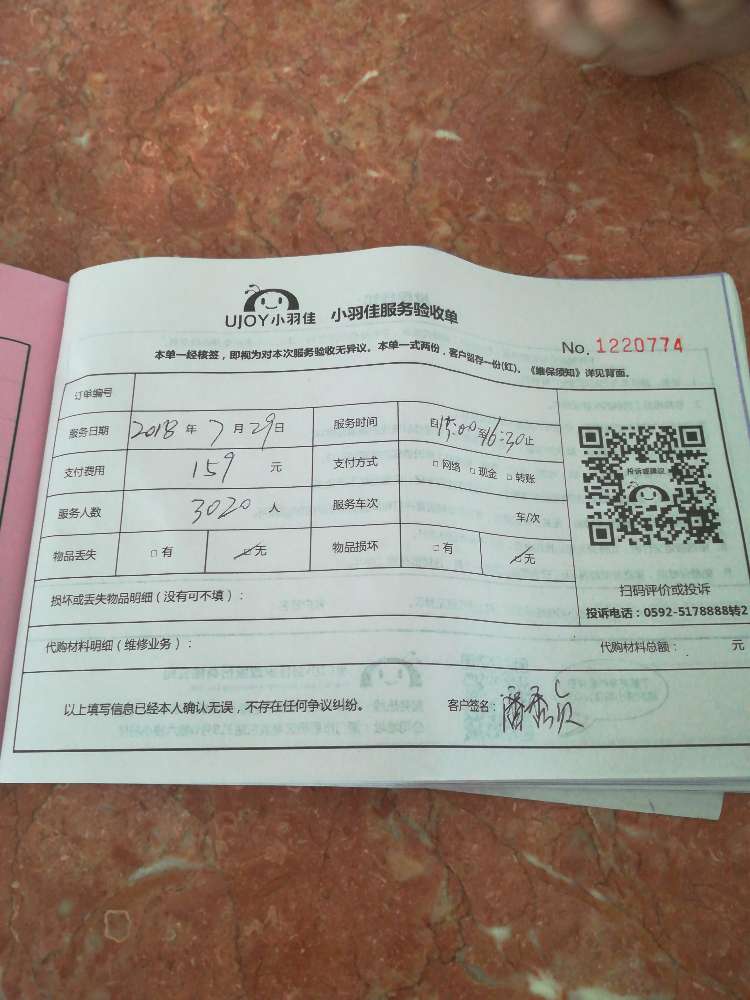 UJOY小羽佳 小羽佳服务验收单
No. 1220774
本单一经核签，即视为对本次服务验收无异议。本单一式两份，客户留存一份(红)。《维保须知》详见背面。
订单编号
服务日期 2018 年 7 月 29 日 服务时间 自 15:00 至 16:30 止
支付费用 159 元 支付方式 □ 网络 □ 现金 □ 转账
服务人数 3020 人 服务车次 车/次
物品丢失 □ 有 □ 无 物品损坏 □ 有 □ 无
投诉或建议
扫码评价或投诉
投诉电话：0592-5178888转2
损坏或丢失物品明细（没有可不填）：
代购材料明细（维修业务）： 代购材料总额： 元
以上填写信息已经本人确认无误，不存在任何争议纠纷。 客户签名：